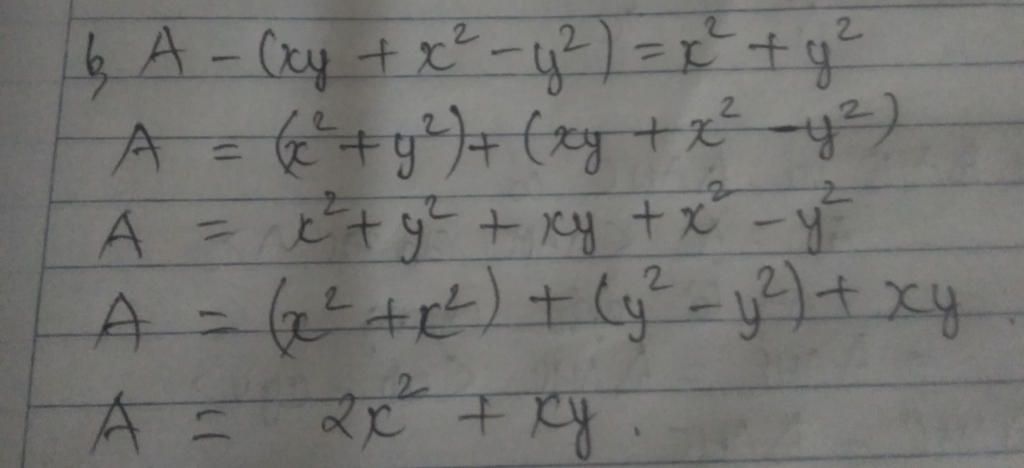 b, A - (xy + x² - y²) = x² + y²
A = (x² + y²) + (xy + x² - y²)
A = x² + y² + xy + x² - y²
A = (x² + x²) + (y² - y²) + xy
A = 2x² + xy.